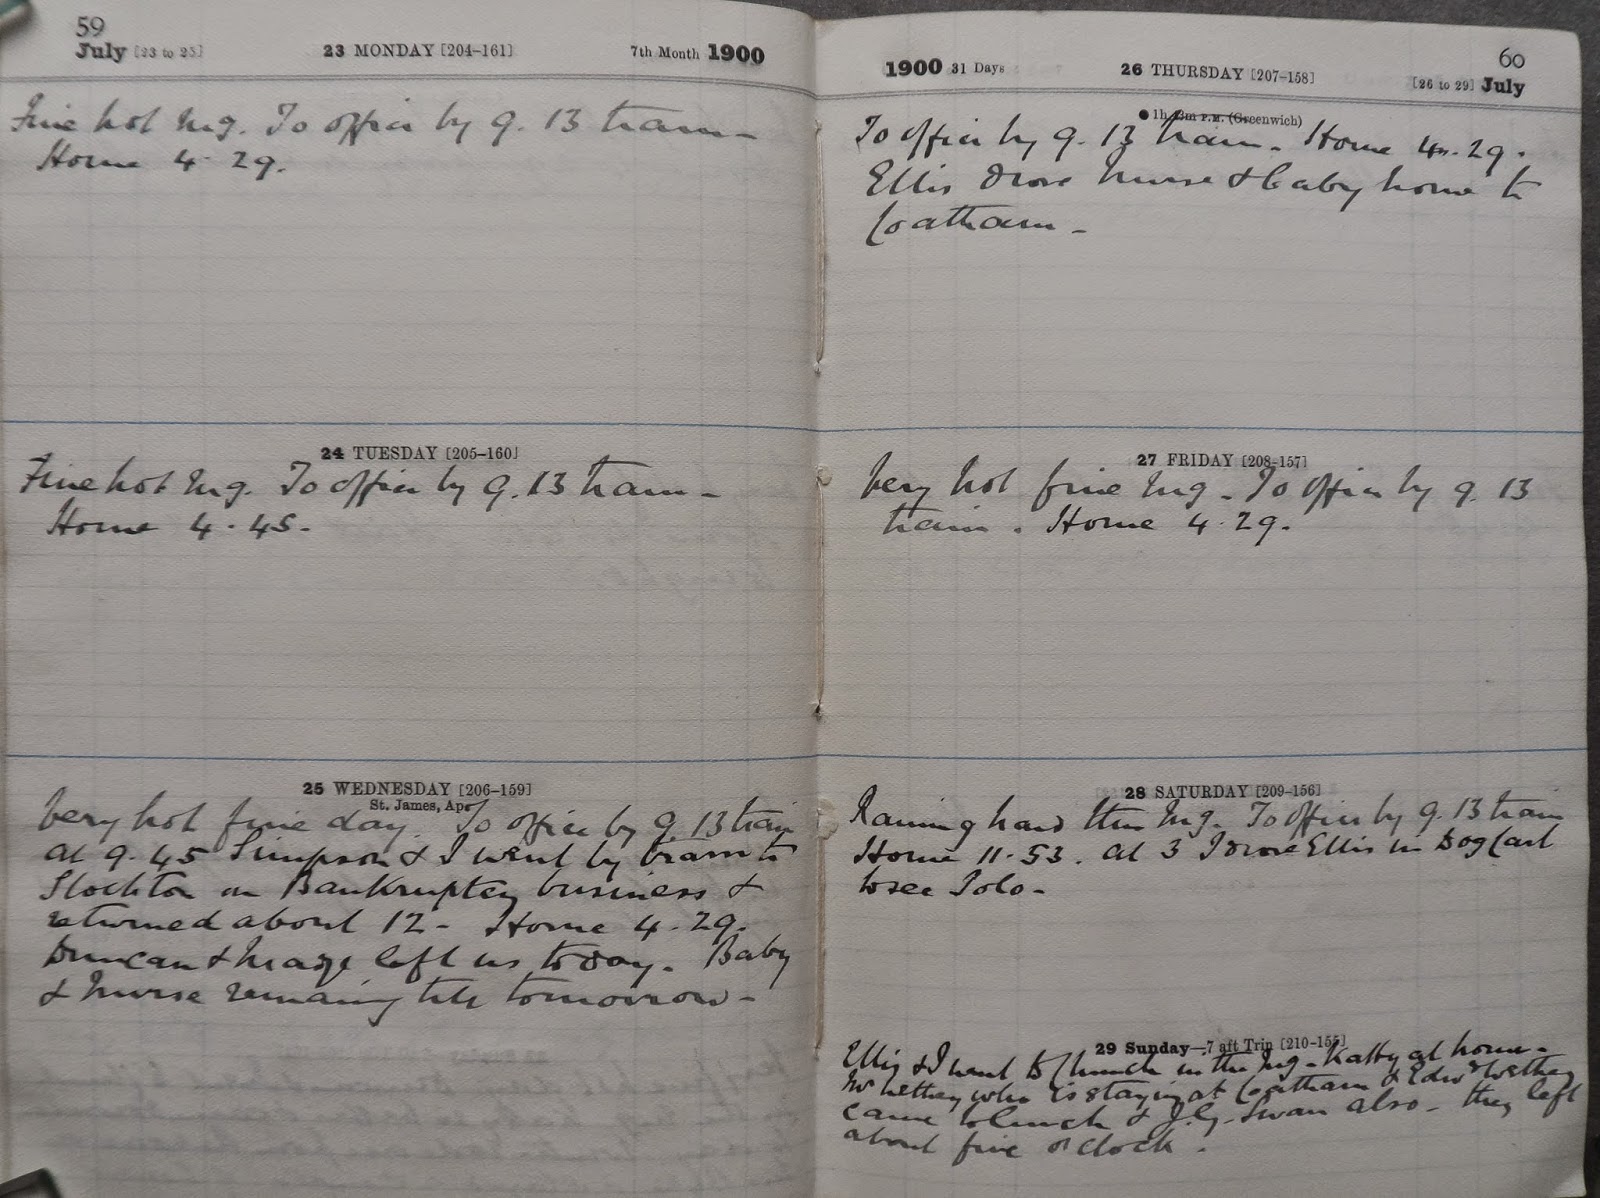 59
July [23 to 25] 23 MONDAY [204–161] 7th Month 1900
Fine hot Mg. To office by 9.13 train –
Home 4.29.
24 TUESDAY [205–160]
Fine hot Mg. To office by 9.13 train –
Home 4.45.
25 WEDNESDAY [206–159]
St. James, Ap.
Very hot fine day. To office by 9.13 train
at 9.45 Simpson & I went by tram to
Stockton on Bankruptcy business &
returned about 12 – Home 4.29.
Duncan & Madge left us today. Baby
& Nurse remaining till tomorrow –
60
1900 31 Days 26 THURSDAY [207–158] [26 to 29] July
● 1h P.M. (Greenwich)
To office by 9.13 train. Home 4.29.
Ellis drove Nurse & baby home to
Coatham –
27 FRIDAY [208–157]
Very hot fine Mg – To office by 9.13
train. Home 4.29.
28 SATURDAY [209–156]
Raining hard this Mg. To office by 9.13 train
Home 11.53. at 3 I drove Ellis in Dog Cart
to see Polo –
29 Sunday—7 aft Trin [210–155]
Ellis & I went to Church in the Mg – Katty at home –
who is staying at Coatham & Edwd
came to lunch & J.G. Swan also – they left
about five o'clock.